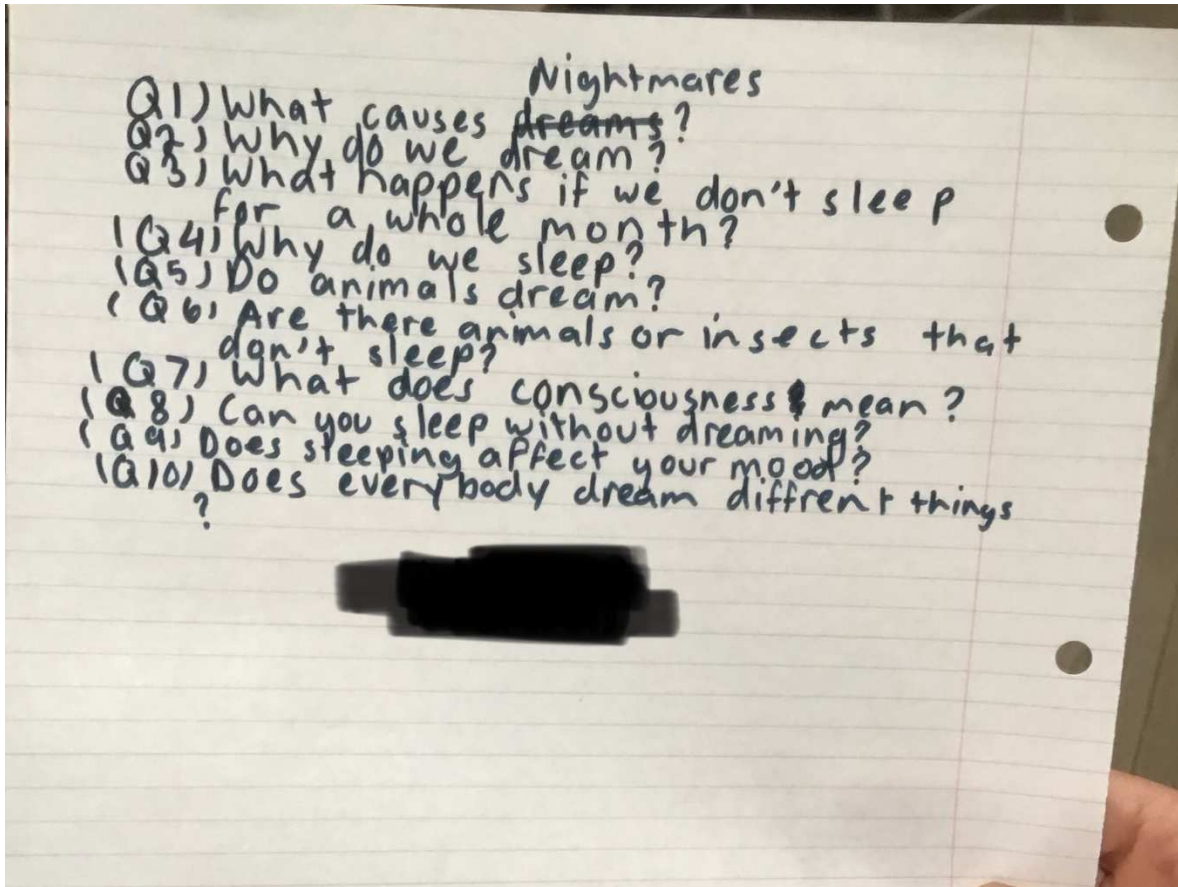 Nightmares
Q1) What causes dreams?
Q2) Why do we dream?
Q3) What happens if we don't sleep
for a whole month?
(Q4) Why do we sleep?
(Q5) Do animals dream?
(Q6) Are there animals or insects that
don't sleep?
(Q7) What does consciousness mean?
(Q8) Can you sleep without dreaming?
(Q9) Does sleeping affect your mood?
(Q10) Does everybody dream diffrent things
?